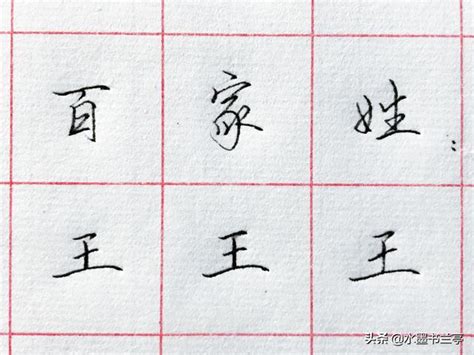 百家姓：
王王王
头条 @水墨书兰亭